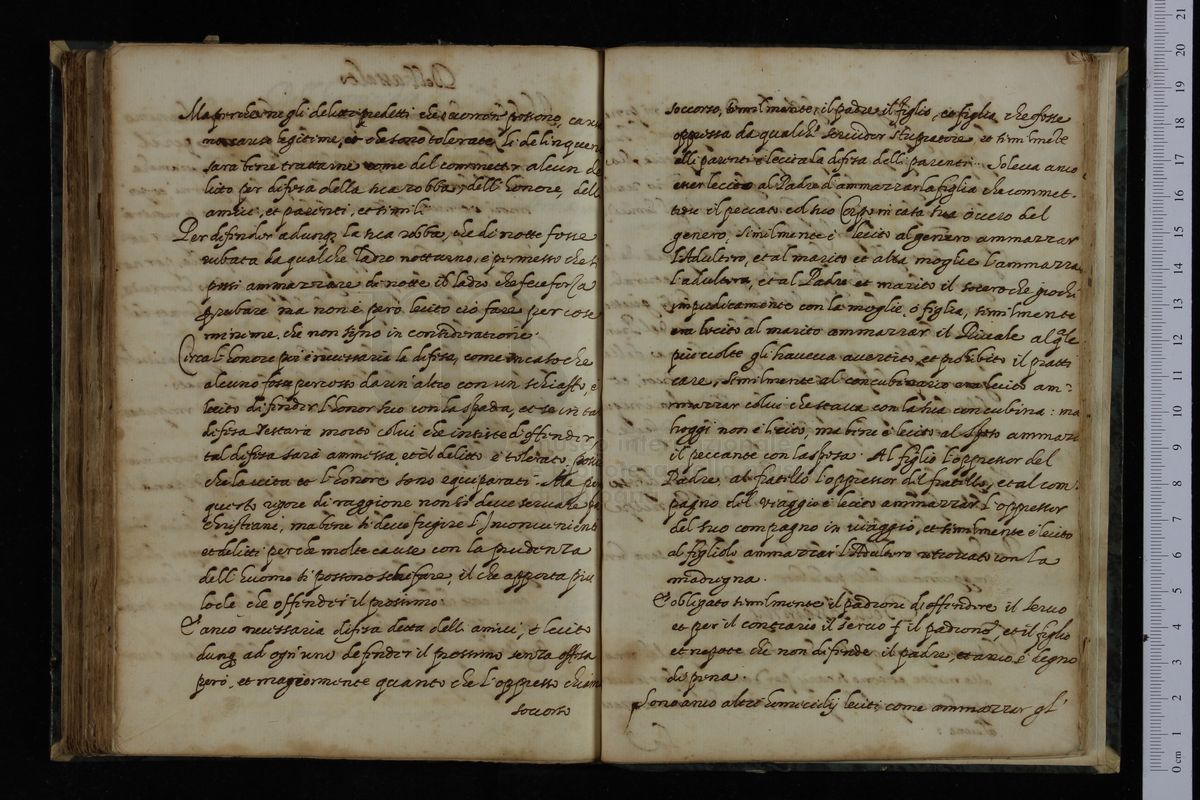 Ma perche ne gli delitti predetti che occorrer possono, ca
no cause legitime, et che sono tolerate li delinquen
sara bene trattarne come del commetter alcun de
litto per difesa della sua robba, dell'honore, dell
amici, et parenti, et simili
Per difender adunq la sua robba, che di notte fosse
rubata da qualche ladro notturno, è permesso che s
possi ammazzare di notte il ladro che fece forza
rubare ma non è però lecito ciò fare per cose
minime, che non sijno in consideratione.
Circa l'honore poi è necessaria la difesa, come in caso che
alcuno fosse percosso da un'altro con un schiaffo, è
lecito difender l'honor suo con la spada, et se in ta
difesa restara morto colui che intese d'offender,
tal difesa sarà ammessa, et il delitto è tolerato,
che la vita et l'honore sono equiparati. Ma
questo rigore di raggione non si deve servare
Christiani, ma bene si deve fugire l'Inconvenient
et delitti perche molte cause con la prudenza
dell'huomo si possono schifare, il che apporta piu
lode che offender il prossimo.
E' anco necessaria difesa detta delli amici, è lecito
dunq ad ogn'uno defender il prossimo senza offesa
però, et magiormente quanto che l'oppresso chiam
soccorso
soccorso, similmente il padre il figlio, et figlia, che fosse
oppressa da qualche servidor stupratore, et similmte
alli parenti è lecita la difesa delli parenti. Soleva anco
esser lecito al Padre d'ammazzar la figlia che commet-
tesse il peccato col suo Corpo in casa sua overo del
genero. Similmente è lecito al genero ammazzar
l'Adultero, et al marito et alla moglie l'ammazza
l'adultera, et al Padre et marito il socero che giochi
impudicamente con la moglie, o figlia, similmente
era lecito al marito ammazzar il Rivale al qle
più volte gli haveva avertito, et prohibito il pratti
care, similmente al concubinario era lecito am-
mazzar colui che stava con la sua concubina: ma
hoggi non è lecito, ma bene è lecito al Sposo ammazz
il peccante con la sposa. Al figlio l'oppressor del
Padre, al fratello l'oppressor del fratello, et al com-
pagno del viaggio è lecito ammazzar l'oppressor
del suo compagno in viaggio, et similmente è lecito
al figliolo ammazzar l'Adultero ritrovato con la
madregna.
E' obligato similmente il padrone di offendere il servo
et per il contrario il servo il padrone, et il figlio
et nepote che non difende il padre, et avo è degno
di pena.
Sono anco altri homicidij leciti come ammazzar gl'